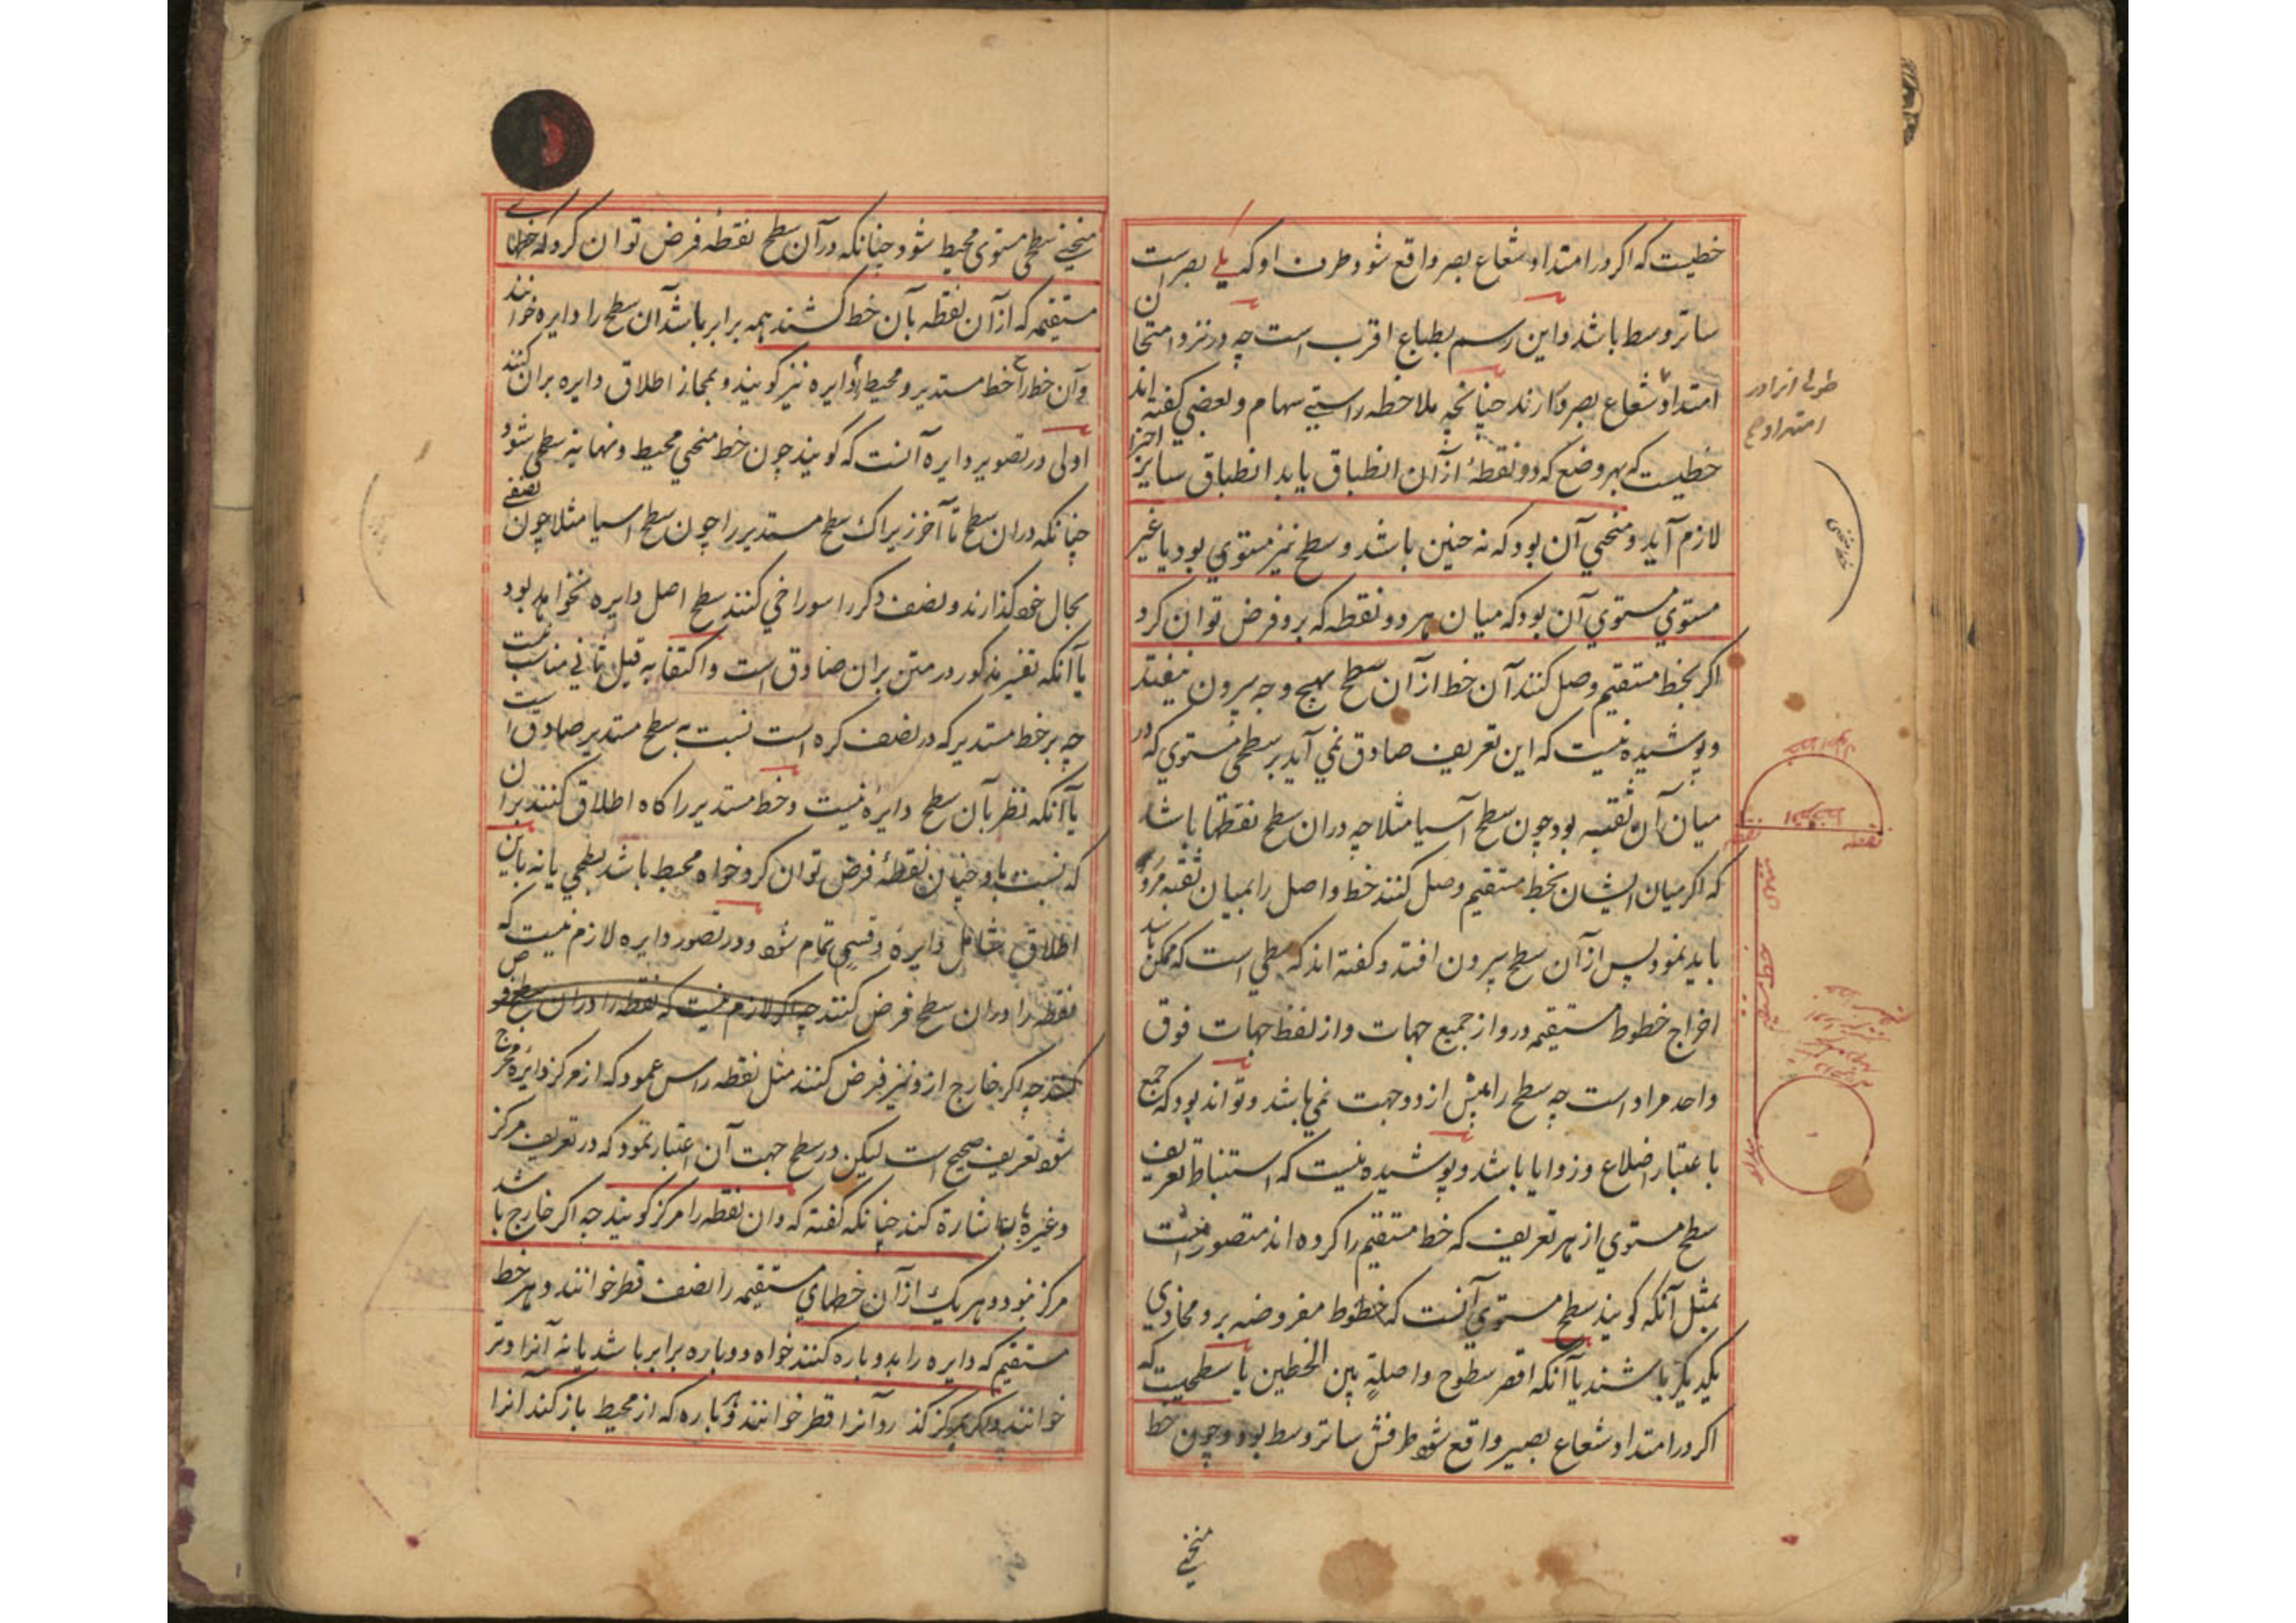 خطیست که اکر در امتداد شعاع بصر واقع شود طرف او که یلی بصر است
ساتر وسط باشد و این رسم بطباع اقرب است چه در نزد امتحان
امتداد شعاع بصر بکارند چنانچه ملاحظه راستی سهام و بعضی کفته اند
خطیست که بهر وضع که دو نقطهٔ از آن انطباق یابد انطباق سایر اجزا
لازم آید و منحنی آن بود که نه چنین باشد و سطح نیز مستوی بود یا غیر
مستوی مستوی آن بود که میان هر دو نقطه که برو فرض توان کرد
اکر بخط مستقیم وصل کنند آن خط از آن سطح بهیچ وجه بیرون نیفتد
و پوشیده نیست که این تعریف صادق نمی آید بر سطحی مستوی که در
میان آن ثقبه بود چون سطح آسیا مثلا چه در ان سطح نقطها باشد
که اکر میان ایشان بخط مستقیم وصل کنند خط واصل را بمیان ثقبه مرور
باید نمود پس از آن سطح بیرون افتد و کفته اند که سطحی است که ممکن باشد
اخراج خطوط مستقیمه درو از جمیع جهات و از لفظ جهات فوق
واحد مراد است چه سطح را بیش از دو جهت نمی باشد و تواند بود که جمع
باعتبار اضلاع و زوایا باشد و پوشیده نیست که استنباط تعریف
سطح مستوی از هر تعریف که خط مستقیم را کرده اند متصور است
بمثل آنکه کویند سطح مستوی آنست که خطوط مفروضه برو محاذی
یکدیکر باشند یا آنکه اقصر سطوح واصلة بین الخطین یا سطحیست که
اکر در امتداد شعاع بصیر واقع شود طرفش ساتر وسط بود و چون خط
منحنی
خط منحنی
نقطه
منحنی سطحی مستوی محیط شود چنانکه در آن سطح نقطهٔ فرض توان کرد که خطهای
مستقیمه که از آن نقطه بآن خط کشند همه برابر باشد آن سطح را دایره خوانند
و آن خط را خط مستدیر و محیط دایره نیز کویند و بمجاز اطلاق دایره بران کنند
اولی در تصویر دایره آنست که کویند چون خط منحنی محیط و نهایه سطحی شود
چنانکه در ان سطح تا آخر زیراک سطح مستدیر را چون سطح آسیا مثلا چون نصفی
بحال خود کذارند و نصف دکر را سوراخی کنند سطح اصل دایره نخواهد بود
با آنکه تفسیر مذکور در متن بران صادق است و اکتفا به قبل ثانی مناسب نیست
چه بر خط مستدیر که در نصف کره است نسبت به سطح مستدیر صادق است
با آنکه نظر بآن سطح دایره نیست و خط مستدیر را کاه اطلاق کنند بران
که نسبت باو چنان نقطهٔ فرض توان کرد خواه محیط باشد بسطحی یا نه باین
اطلاق شامل دایره و قسی تمام شود و در تصور دایره لازم نیست که
نقطه را در ان سطح فرض کنند چه اکر لازم نیست که نقطه را در ان سطح فرض
کنند چه اکر خارج ازو نیز فرض کنند مثل نقطه راس عمود که از مرکز دایره مخرج
شود تعریف صحیح است لیکن در سطح جهت آن اعتبار نمود که در تعریف مرکز
و غیره بنا اشارة کند چنانکه کفته که و ان نقطه را مرکز کویند چه اکر خارج باشد
مرکز نبود و هر یک از آن خطهای مستقیمه را نصف قطر خوانند و هر خط
مستقیم که دایره را بدو پاره کنند خواه دو پاره برابر باشد یا نه آنرا وتر
خوانند و اکر بمرکز کذرد آنرا قطر خوانند و پاره که از محیط باز کند آنرا